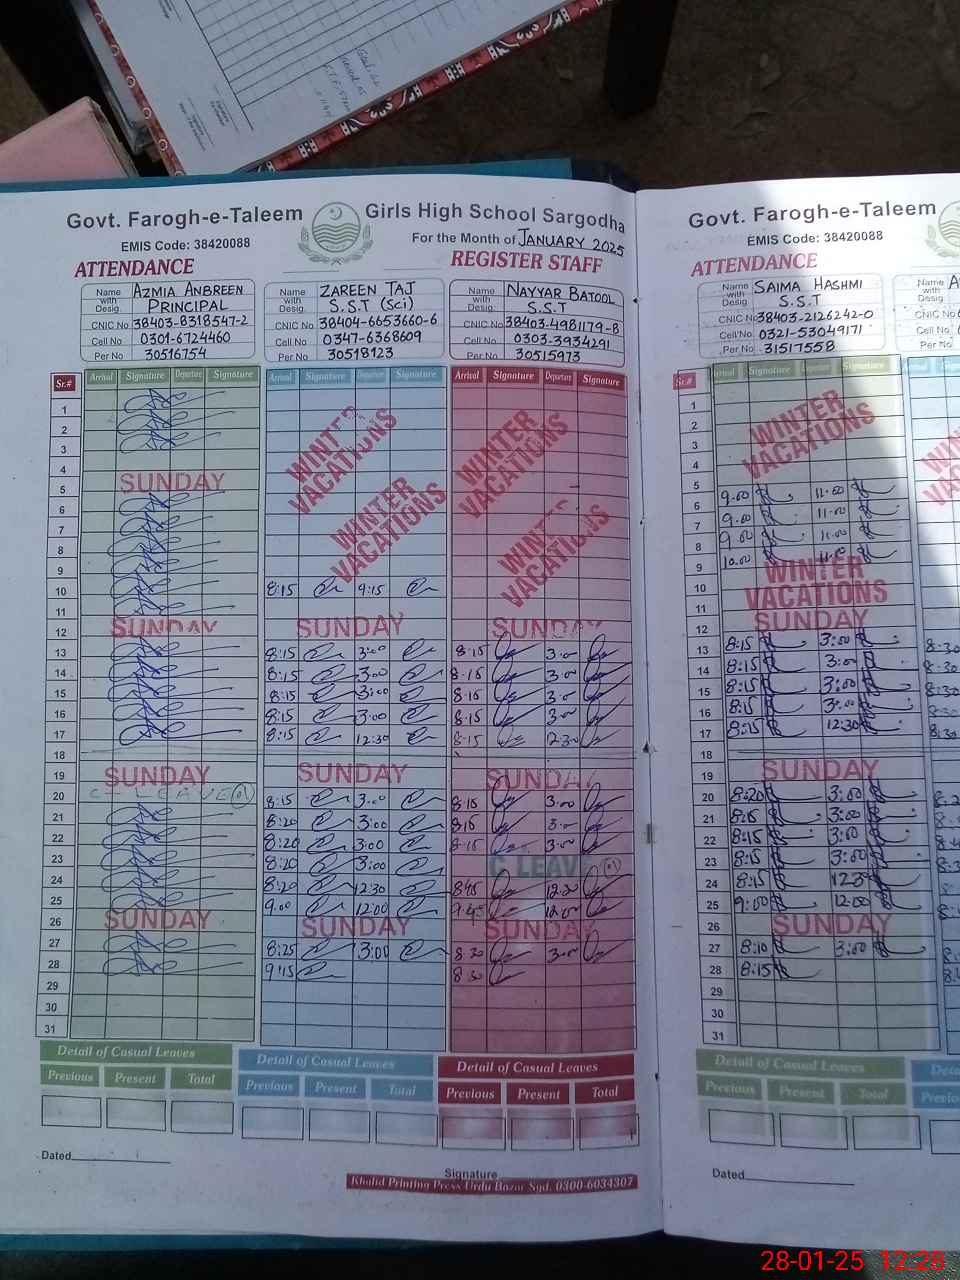 Govt. Farogh-e-Taleem Girls High School Sargodha
EMIS Code: 38420088
For the Month of JANUARY 2025
ATTENDANCE REGISTER STAFF
Name with Desig. AZMIA ANBREEN PRINCIPAL
CNIC No 38403-8318547-2
Cell No 0301-6724460
Per No 30516754
Name with Desig. ZAREEN TAJ S.S.T (Sci)
CNIC No 38404-6653660-6
Cell No 0347-6368609
Per No 30518123
Name with Desig. NAYYAR BATOOL S.S.T
CNIC No 38403-4981179-8
Cell No 0303-3934291
Per No 30515973
Sr.# Arrival Signature Departure Signature Arrival Signature Departure Signature Arrival Signature Departure Signature
WINTER VACATIONS WINTER VACATIONS
WINTER VACATIONS WINTER VACATIONS
1
2
3
4
5 SUNDAY
6
7
8
9
10 8:15 9:15
11
12 SUNDAY SUNDAY SUNDAY
13 8:15 3:00 8-15 3:00
14 8:15 3:00 8-15 3:00
15 8:15 3:00 8-15 3:00
16 8:15 3:00 8-15 3:00
17 8:15 12:30 8-15 12:30
18
19 SUNDAY SUNDAY SUNDAY
20 C-LEAVE 8:15 3:00 8-15 3:00
21 8:20 3:00 8-15 3:00
22 8:20 3:00 8-15 3:00
23 8:20 3:00 C LEAVE
24 8:20 12:30 8:45 12:30
25 9:00 12:00 9:45 12:00
26 SUNDAY SUNDAY SUNDAY
27 8:25 3:00 8:30 3:00
28 9:15 8:30
29
30
31
Detail of Casual Leaves Detail of Casual Leaves Detail of Casual Leaves
Previous Present Total Previous Present Total Previous Present Total
Dated
Signature
Khalid Printing Press Urdu Bazar Sgd. 0300-6034307
Govt. Farogh-e-Taleem
EMIS Code: 38420088
ATTENDANCE
Name with Desig. SAIMA HASHMI S.S.T
CNIC No 38403-2126242-0
Cell No. 0321-5304917
Per No 31517558
Sr.# Arrival Signature Departure Signature
WINTER VACATIONS
1
2
3
4
5
6 9.00 11:00
7 9.00 11.00
8 9.00 11.00
9 10.00 11.00
10 WINTER
11 VACATIONS
12 SUNDAY
13 8:15 3:00 8:30
14 8:15 3:00 8:30
15 8:15 3:00 8:30
16 8:15 3:00 8:30
17 8:15 12:30 8:30
18
19 SUNDAY
20 8:20 3:00
21 8:15 3:00
22 8:15 3:00
23 8:15 3:00
24 8:15 12:30
25 9:00 12:00
26 SUNDAY
27 8:10 3:00
28 8:15
29
30
31
Detail of Casual Leaves
Previous Present Total
Dated
28-01-25 12:28